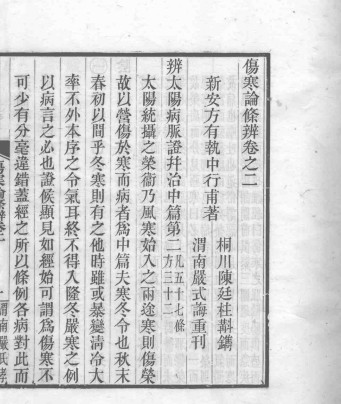 傷寒論條辨卷之二
新安方有執中行甫著
桐川陳廷柱斠鐫
渭南嚴式誨重刊
辨太陽病脈證幷治中篇第二 凡五十七條方三十二
太陽統攝之榮衞乃風寒始入之兩途寒則傷榮
故以營傷於寒而病者爲中篇夫寒冬令也秋末
春初以間乎冬寒則有之他時雖或暴變淸冷大
率不外本序之令氣耳終不得入隆冬嚴寒之例
以病言之必也證候顯見如經始可謂爲傷寒不
可少有分毫違錯蓋經之所以條例各病對此而